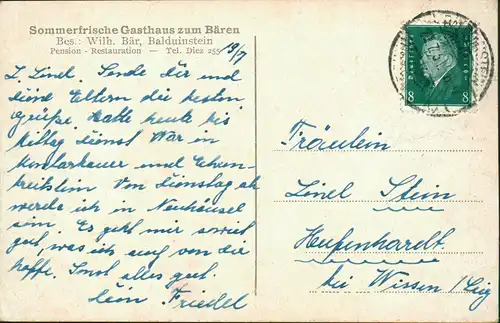 Sommerfrische Gasthaus zum Bären
Bes.: Wilh. Bär, Balduinstein
Pension - Restauration — Tel. Diez 255
19/7
L. Linel. Sende dir und
deine Eltern die besten
Grüße. Hatte heute bis
Mittag Dienst War in
Montabauer und Ehren-
breitstein Von Dienstag ab
werde ich in Neuhäusel
sein. Es geht mir soweit
gut, was ich auch von dir
hoffe. Sonst alles gut.
Dein Friedel
Deutsches Reich
8 8
Fräulein
Linel Stein
Hufenhardt
bei Wissen / Sieg